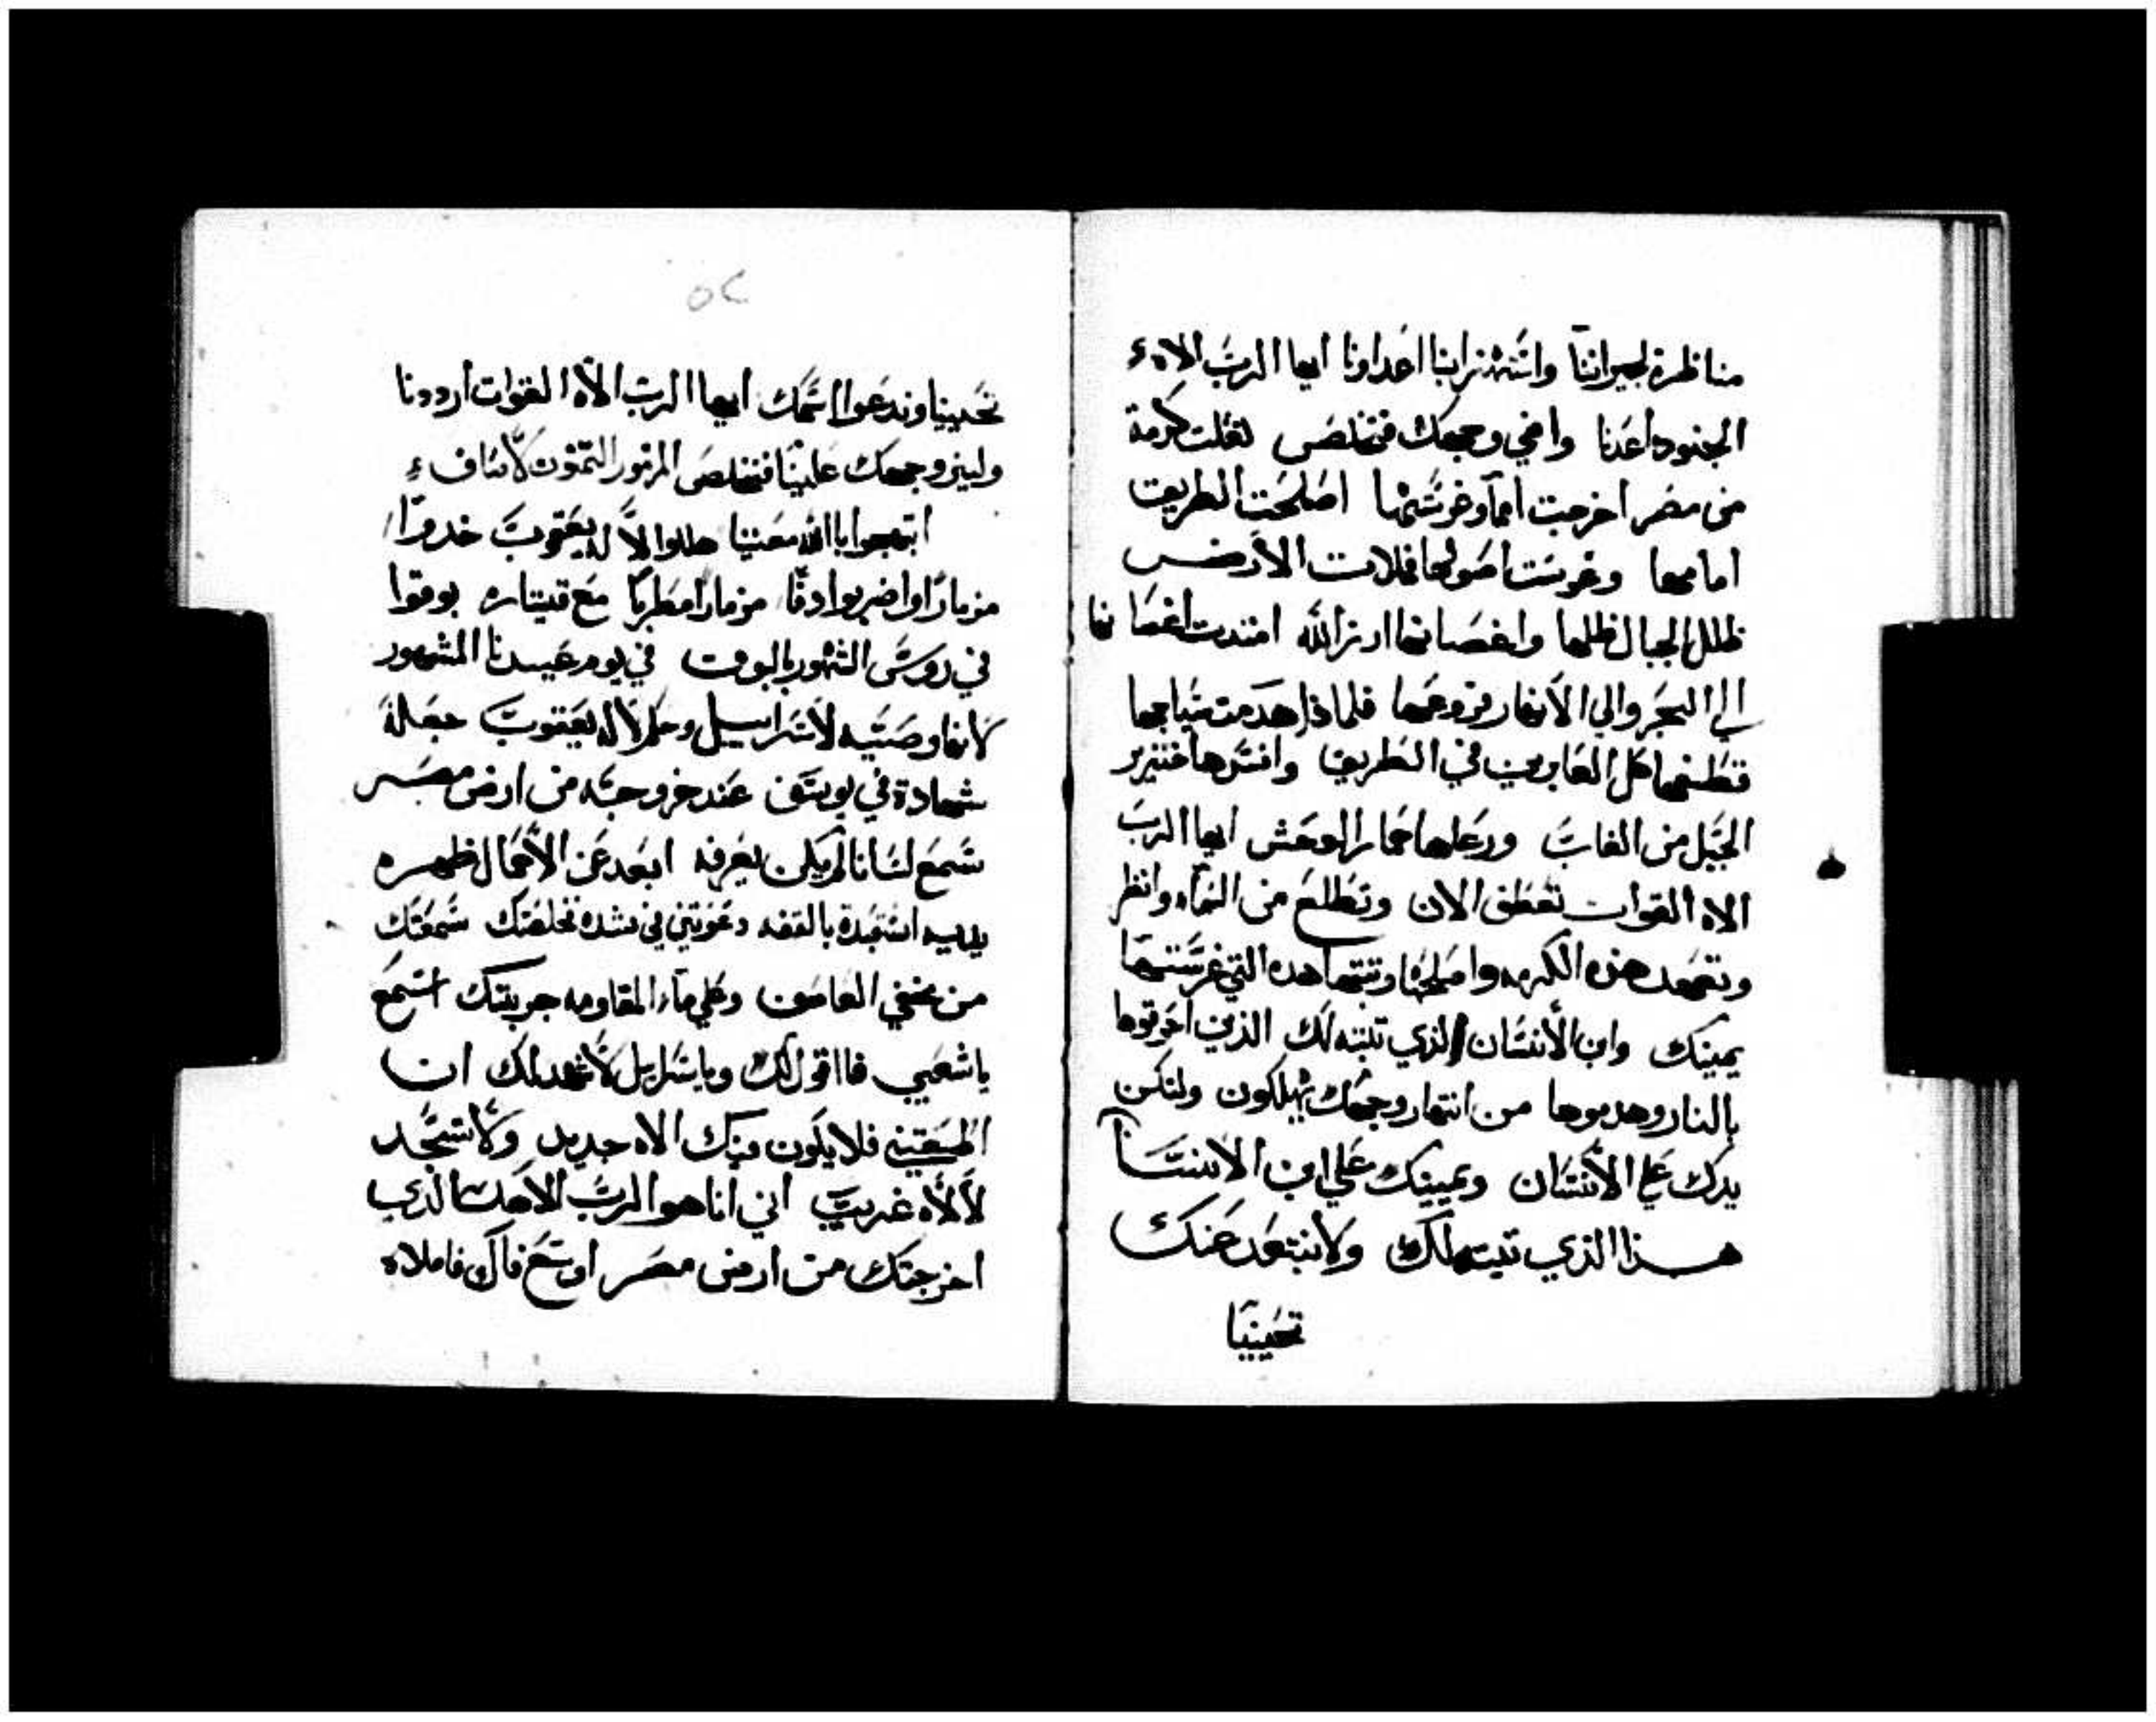 مناظرة لجيراننا واستهزا بنا اعداونا ايها الرب الاه
الجنود اعدنا واضي وجهك فنخلص نقلت كرمة
من مصر اخرجت امماً وغرستها اصلحت الطريق
امامها وغرست اصولها فملات الارض
ظلل الجبال ظلها واغصانها ارز الله امتدت اغصانها
الي البحر والي الانهار فروعها فلماذا هدمت سياجها
قطفها كل العابرين في الطريق وافسدها خنزير
الجبل من الغاب ورعاها حمار الوحش ايها الرب
الاه القوات تعطف الان وتطلع من السماء وانظر
وتعهد هذه الكرمه واصلحها وتبتها هده التي غرستها
يمينك وابن الانسان الذي تبته لك الذين احرقوها
بالنار وهدموها من انتهار وجهك يهلكون ولتكن
يدك علي الانسان ويمينك علي ابن الانسان
هذا الذي تبته لك ولا نبتعد عنك
تحيينا
٥٢
تحيينا وندعوا اسمك ايها الرب الاه القوات ارددنا
ولينر وجهك علينا فنخلص المزمور التمنون لاساف
ابتهجوا بالله معيننا هللوا لاله يعقوب خدوا
مزماراً واضربوا دفاً مزماراً مطرباً مع قيتاره بوقوا
في روس الشهور بالبوق في يوم عيدنا المشهور
لانها وصيه لاسراييل وحكم لاله يعقوب جعله
شهادة في يوسف عند خروجه من ارض مصر
سمع لسانا لم يكن يعرفه ابعد عن الاحمال ظهره
يديه استعبدة بالقفه دعوتني في شده فخلصتك سمعتك
من مخفي العاصف وعلي ماء المقاومه جربتك اسمع
ياشعبي فااقول لك ويا اسراييل لاشهد لك ان
اطعتني فلا يكون فيك الاه جديد ولا تسجد
لالاه غريب اني انا هو الرب الاهك الذي
اخرجتك من ارض مصر اوسع فاك فاملاه